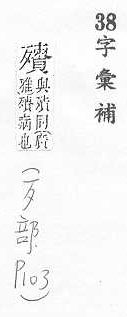 38字彙補
殨與潰同廣
雅殨病也
(歹部P103)